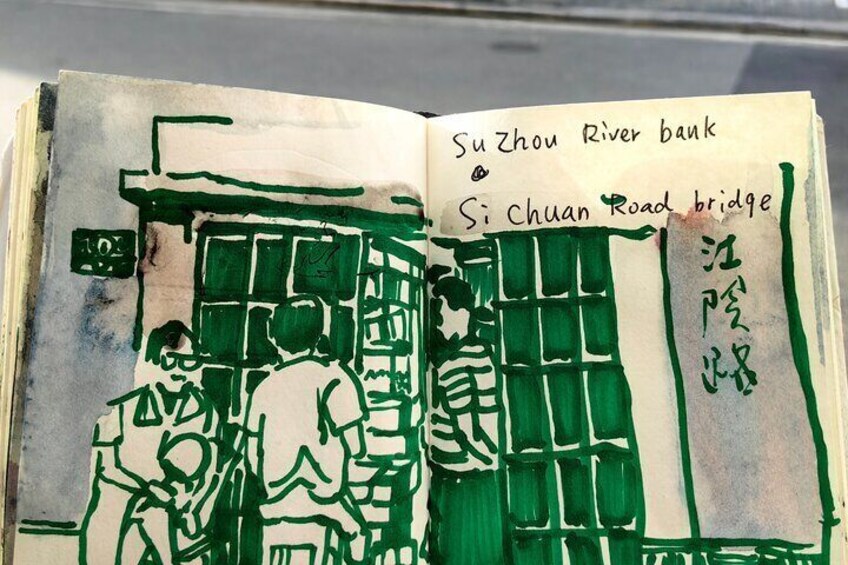 SuZhou River bank
Si Chuan Road bridge